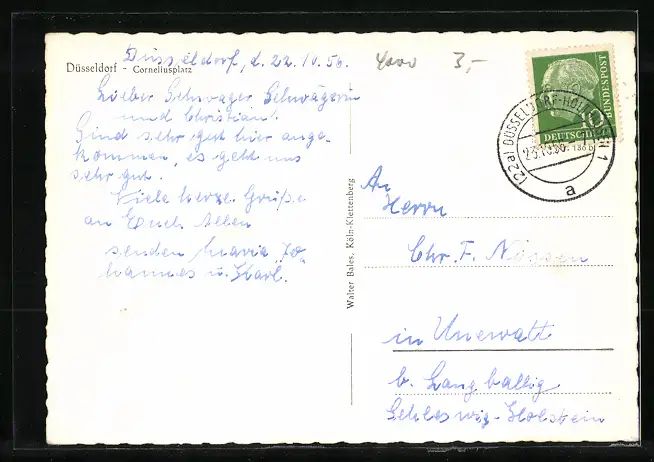 Düsseldorf, d. 22.10.56.
4000 3,-
Düsseldorf - Corneliusplatz
Lieber Schwager, Schwägerin
und Christian!
Sind sehr gut hier ange-
kommen, es geht uns
sehr gut.
Viele herzl. Grüße
an Euch Allen
senden Maria, Jo-
hannes u. Karl.
Walter Bales, Köln-Klettenberg
DEUTSCHE
BUNDESPOST
10
(22a) DÜSSELDORF-HOLTHAUSEN 1
23.10.56
a
An
Herrn
Chr. F. Nissen
in Unewatt
b. Langballig
Schleswig-Holstein